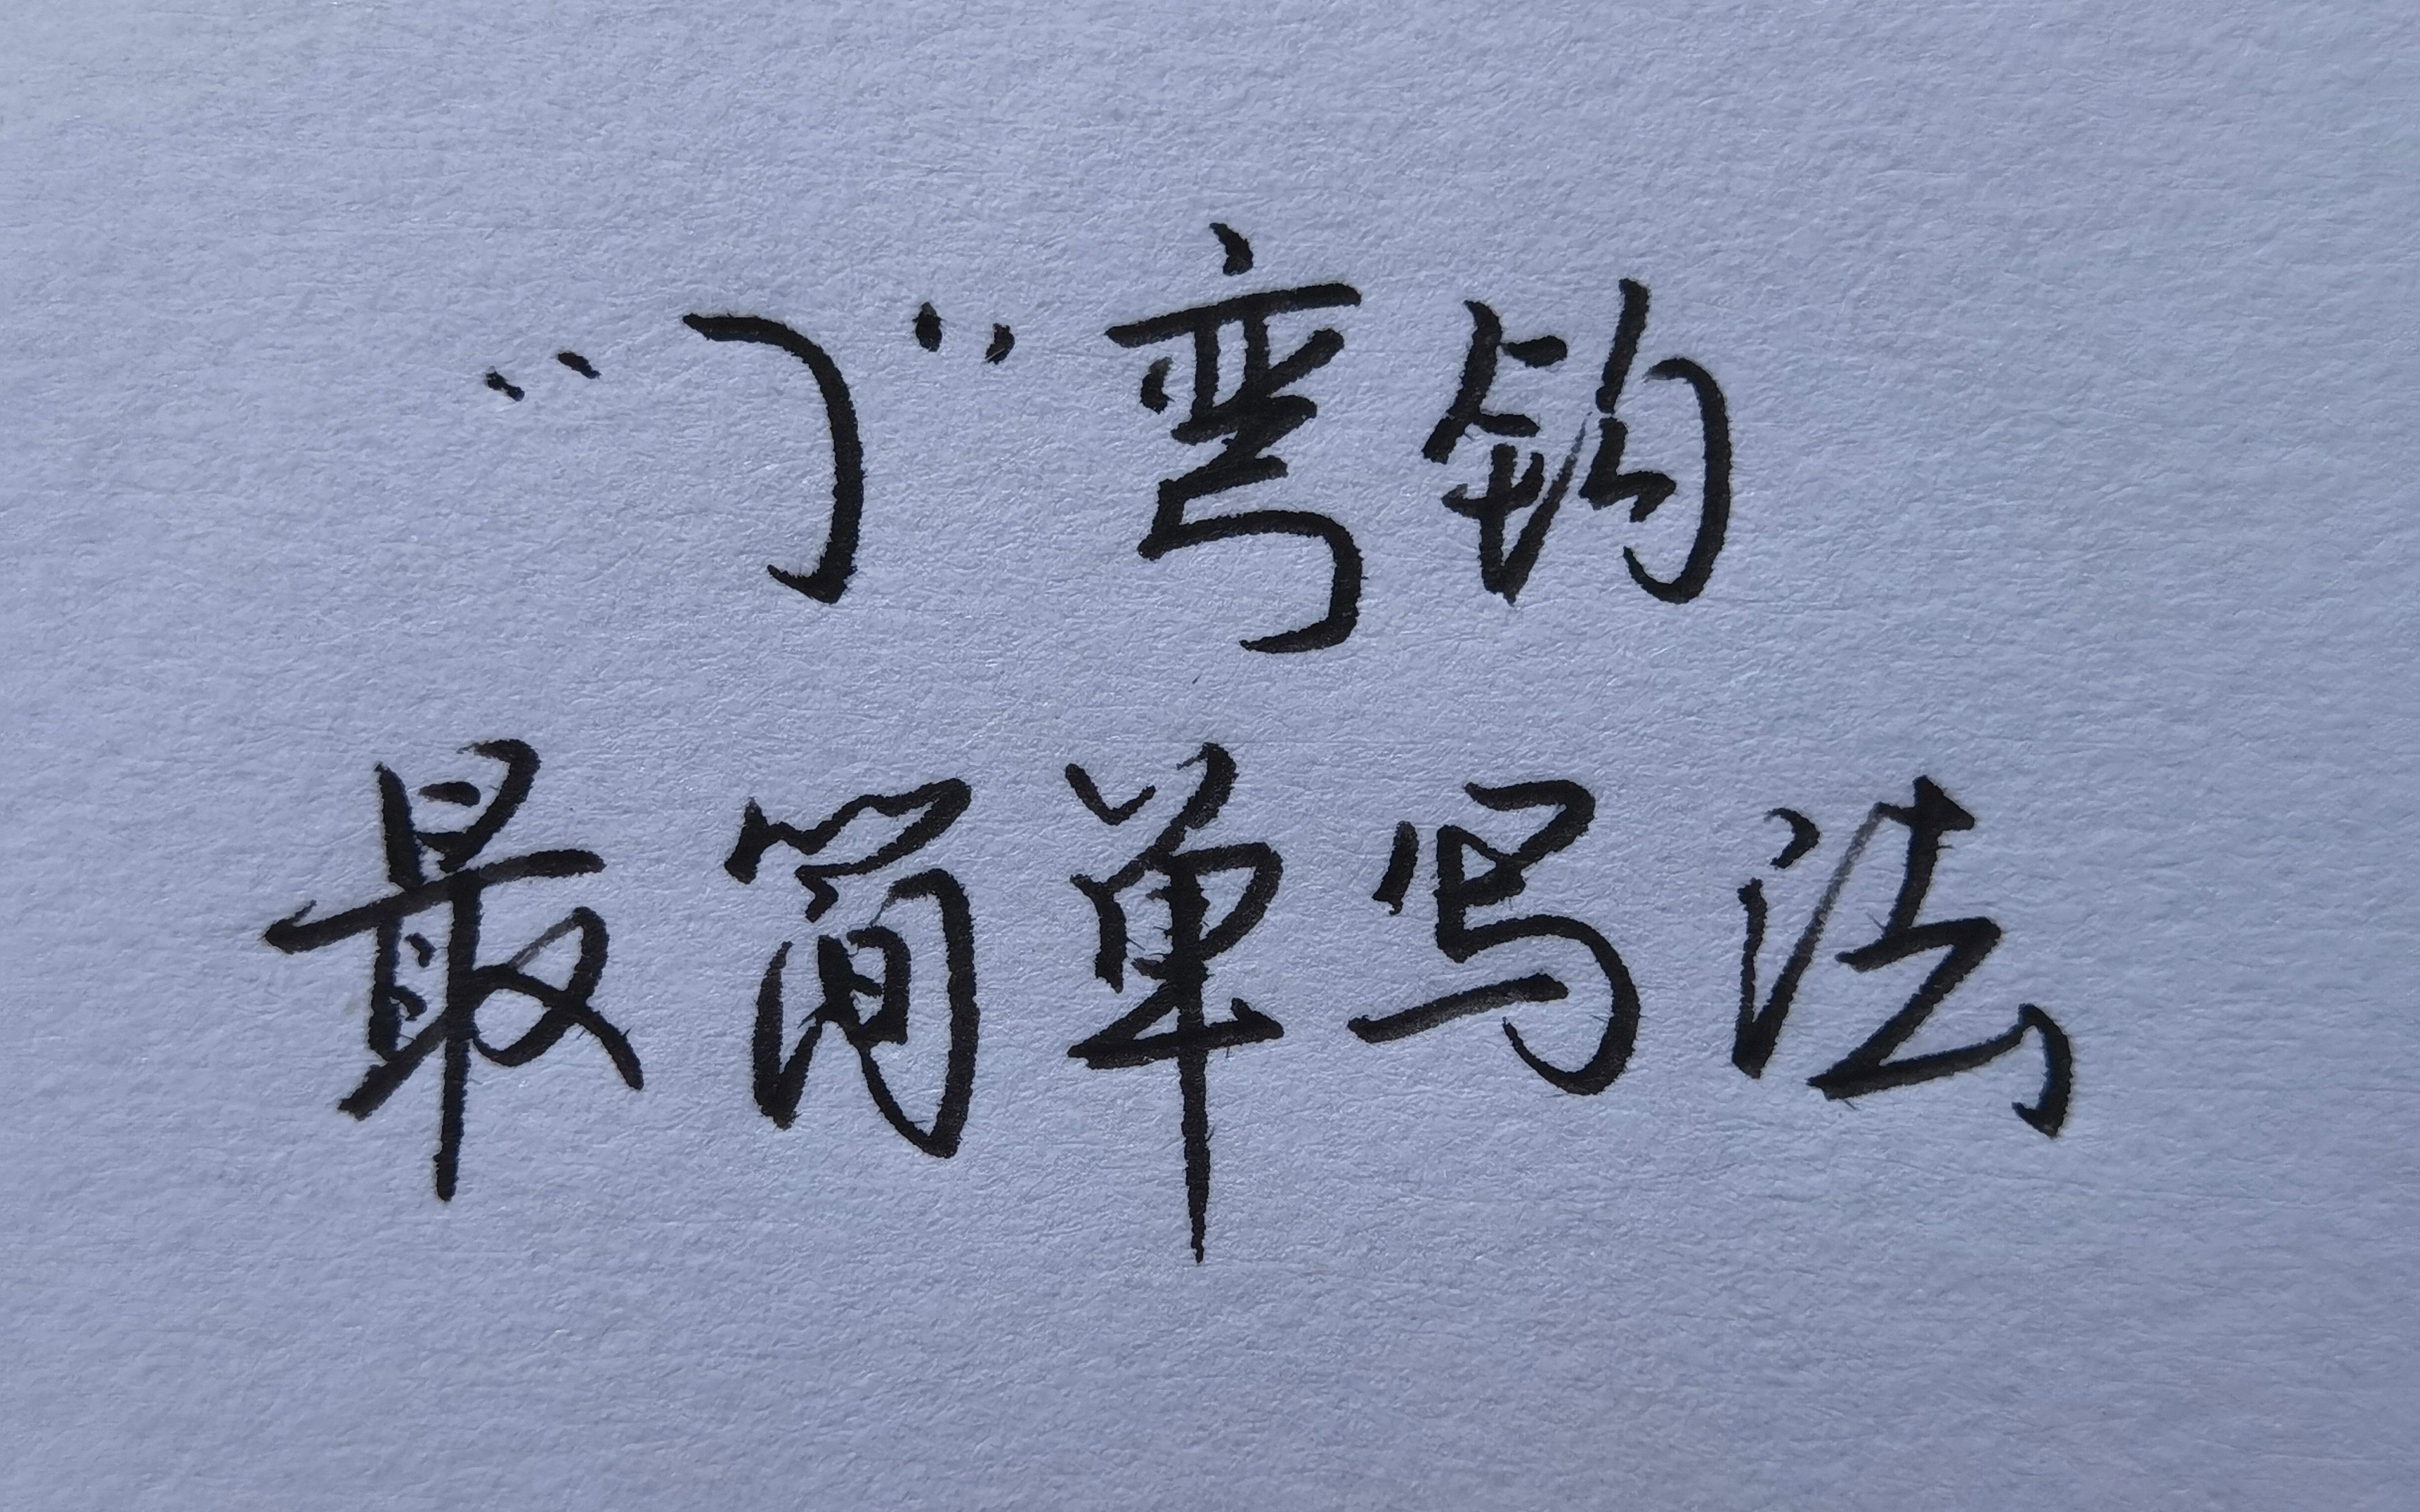 “㇆”弯钩
最简单写法